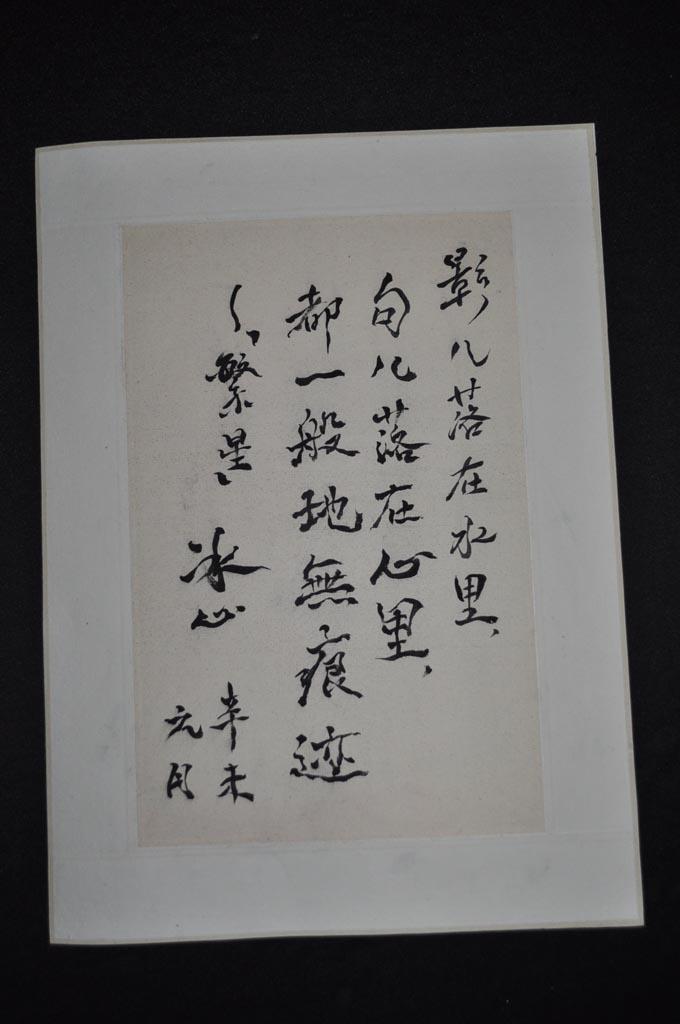 影儿落在水里、
句儿落在心里、
都一般地無痕迹
《繁星》 冰心
辛未
元月